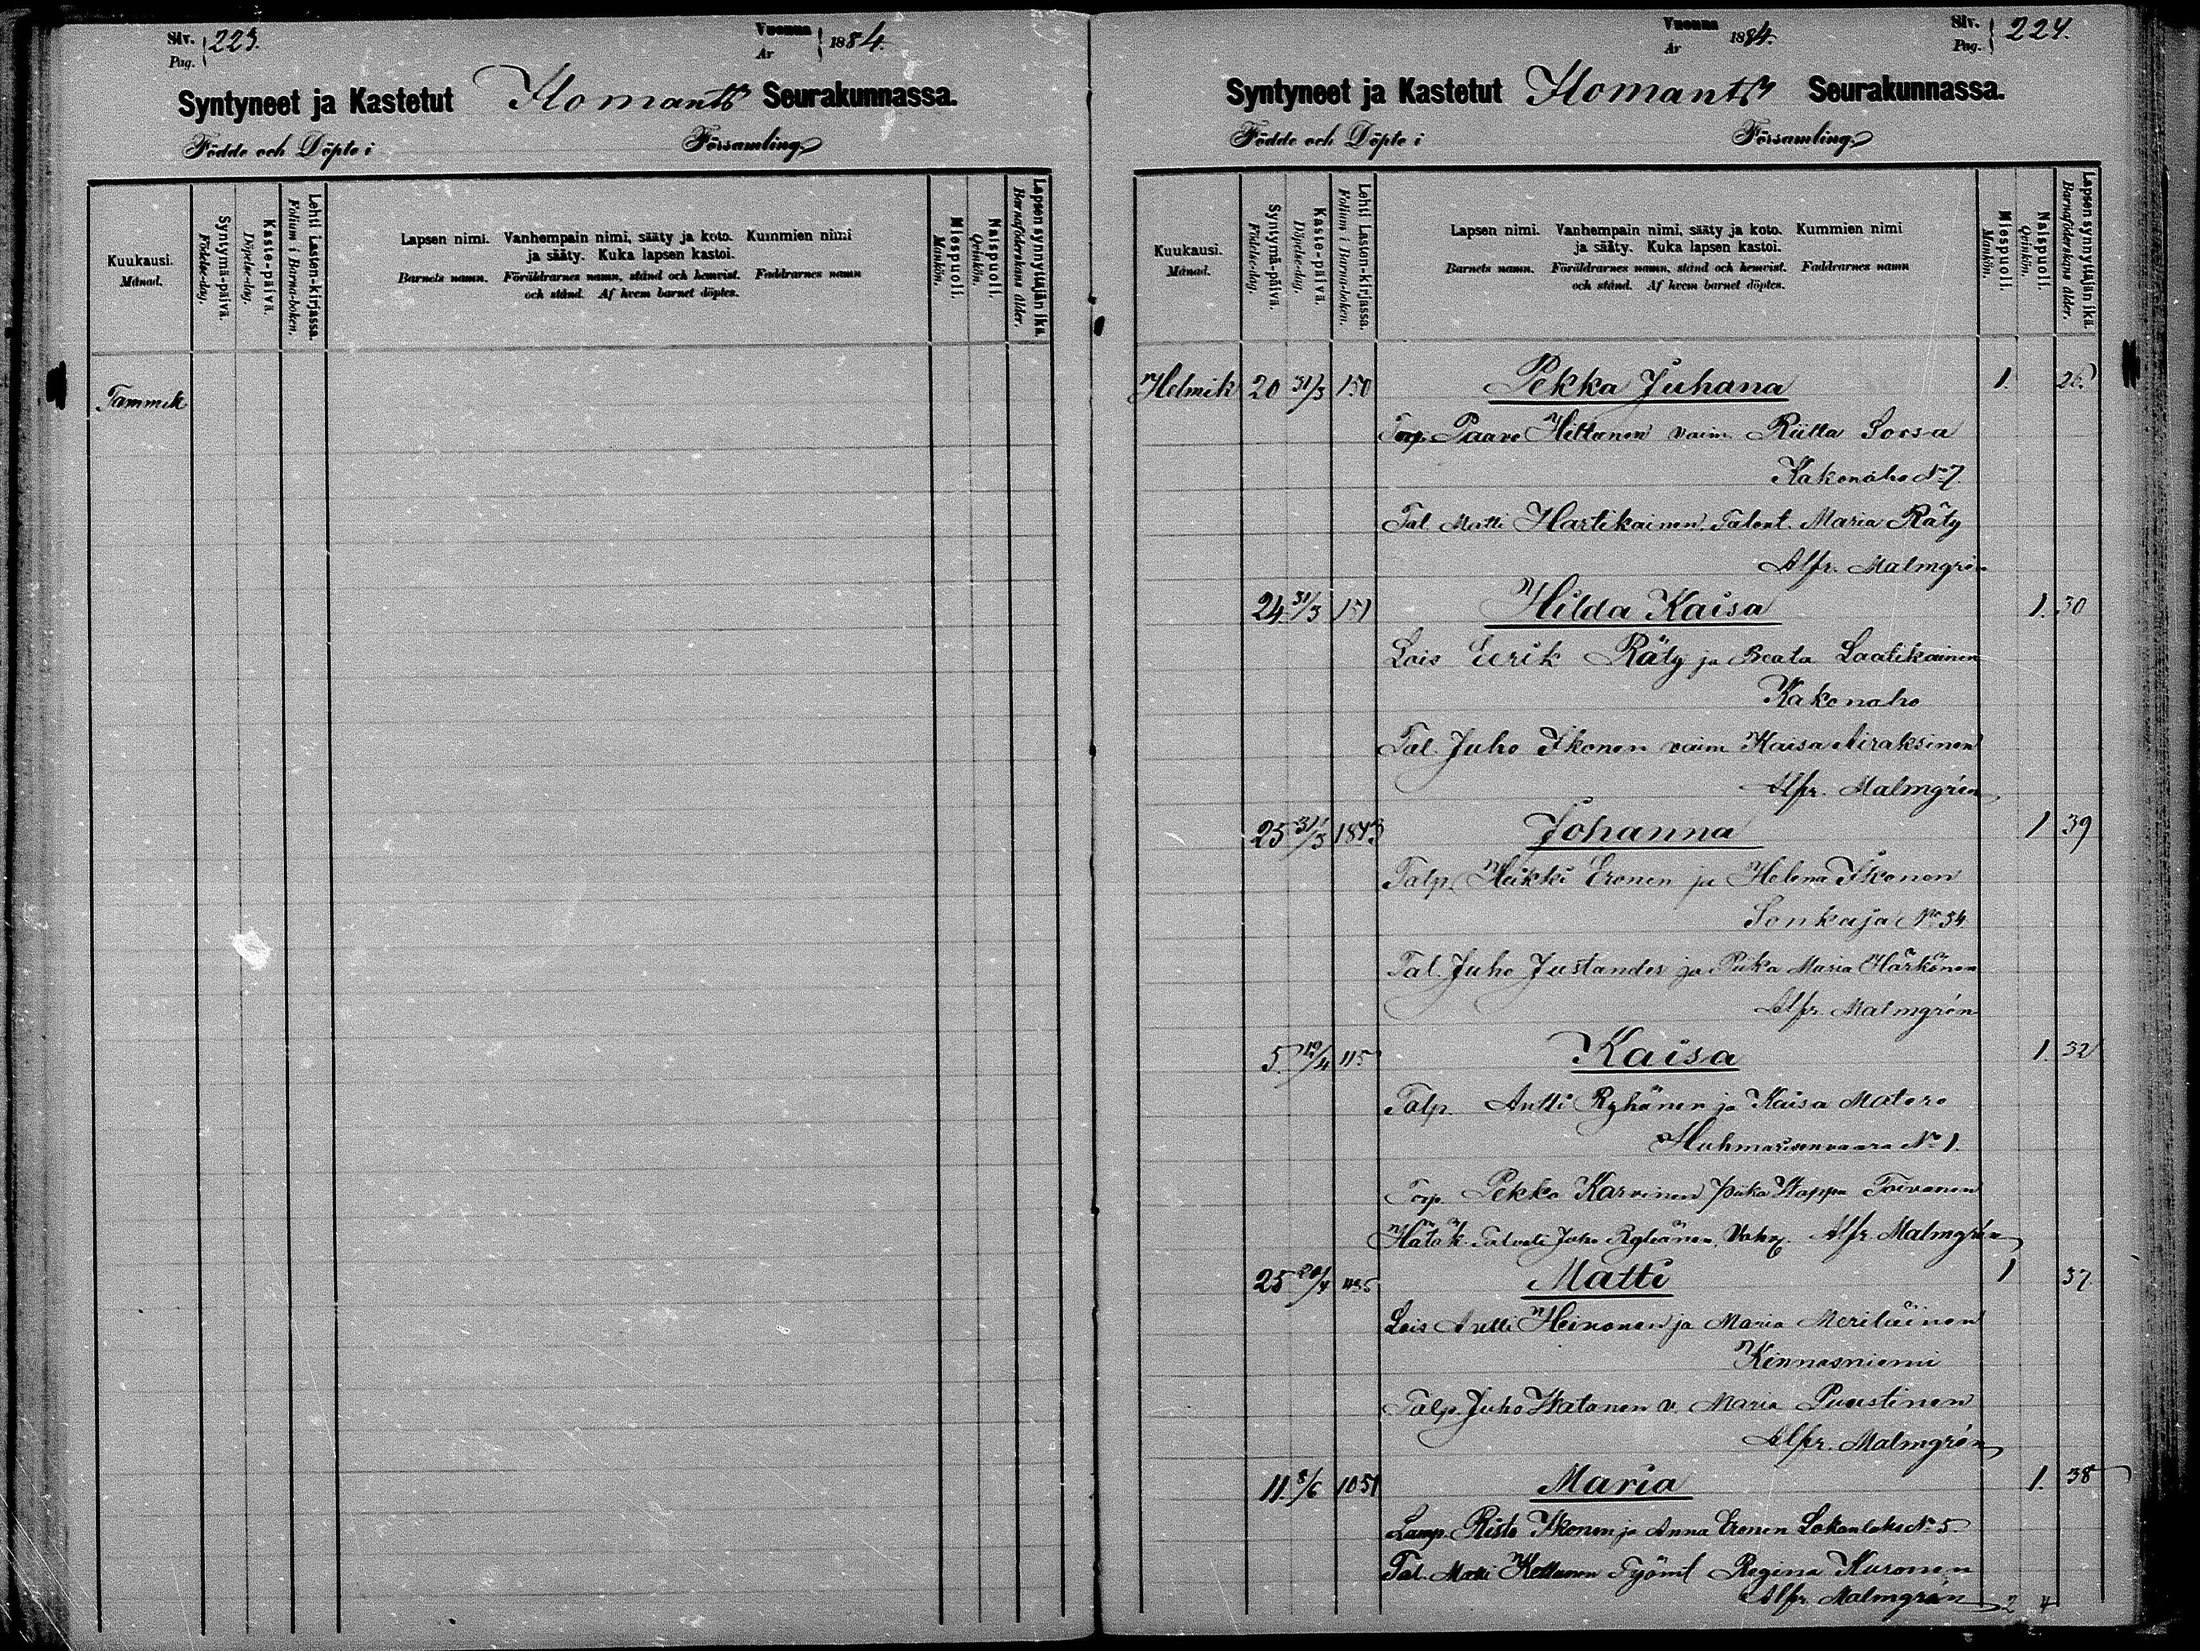 Siv. Pag. 223.
Vuonna År 1884.
Syntyneet ja Kastetut Ilomants Seurakunnassa.
Födde och Döpte i Församling
Kuukausi. Månad.
Syntymä-päivä. Födelse-dag.
Kaste-päivä. Döpelse-dag.
Lehti Lasten-kirjassa. Folium i Barna-boken.
Lapsen nimi. Vanhempain nimi, sääty ja koto. Kummien nimi
ja sääty. Kuka lapsen kastoi.
Barnets namn. Föräldrarnes namn, stånd och hemvist. Faddrarnes namn
och stånd. Af hvem barnet döptes.
Miespuoli. Mankön.
Naispuoli. Qvinkön.
Lapsensynnyttäjän ikä. Barnaföderskans ålder.
Tammik
Vuonna År 1884.
Siv. Pag. 224.
Syntyneet ja Kastetut Ilomants Seurakunnassa.
Födde och Döpte i Församling
Kuukausi. Månad.
Syntymä-päivä. Födelse-dag.
Kaste-päivä. Döpelse-dag.
Lehti Lasten-kirjassa. Folium i Barna-boken.
Lapsen nimi. Vanhempain nimi, sääty ja koto. Kummien nimi
ja sääty. Kuka lapsen kastoi.
Barnets namn. Föräldrarnes namn, stånd och hemvist. Faddrarnes namn
och stånd. Af hvem barnet döptes.
Miespuoli. Mankön.
Naispuoli. Qvinkön.
Lapsensynnyttäjän ikä. Barnaföderskans ålder.
Helmik 20 31/3 150 Pekka Juhana 1. 26.
Torp. Paavo Hiltunen vaim. Riitta Sorsa
Kakonaho No 7.
Tal. Matti Hartikainen. Talont. Maria Räty
Alfr. Malmgrén
24. 31/3 151 Hilda Kaisa 1. 30
Lois Eerik Räty ja Beata Laatikainen
Kakonaho
Tal. Juho Ikonen vaim Kaisa Airaksinen
Alfr. Malmgrén
25 31/3 1843 Johanna 1 39
Talp. Heikki Eronen ja Helena Ikonen
Sonkaja No 34.
Tal. Juho Justander ja Piika Maria Härkönen
Alfr. Malmgrén
5. /4 115 Kaisa 1. 32
Talp. Antti Ryhänen ja Kaisa Matero
Huhmarisenvaara No 1.
Torp. Pekka Karvinen piika Wappu Toivanen
Hätäk. Juho Ryhänen. Alfr. Malmgrén
25 20/4 Matti 1 37.
Lois Antti Heinonen ja Maria Meriläinen
Kinnasniemi
Talp. Juho Watanen v. Maria Puustinen
Alfr. Malmgrén
11. 8/6 1051 Maria 1. 38
Lamp. Risto Ikonen ja Anna Eronen No 5.
Tal. Matti Kettunen Regina Kuronen
Alfr. Malmgrén 2 4